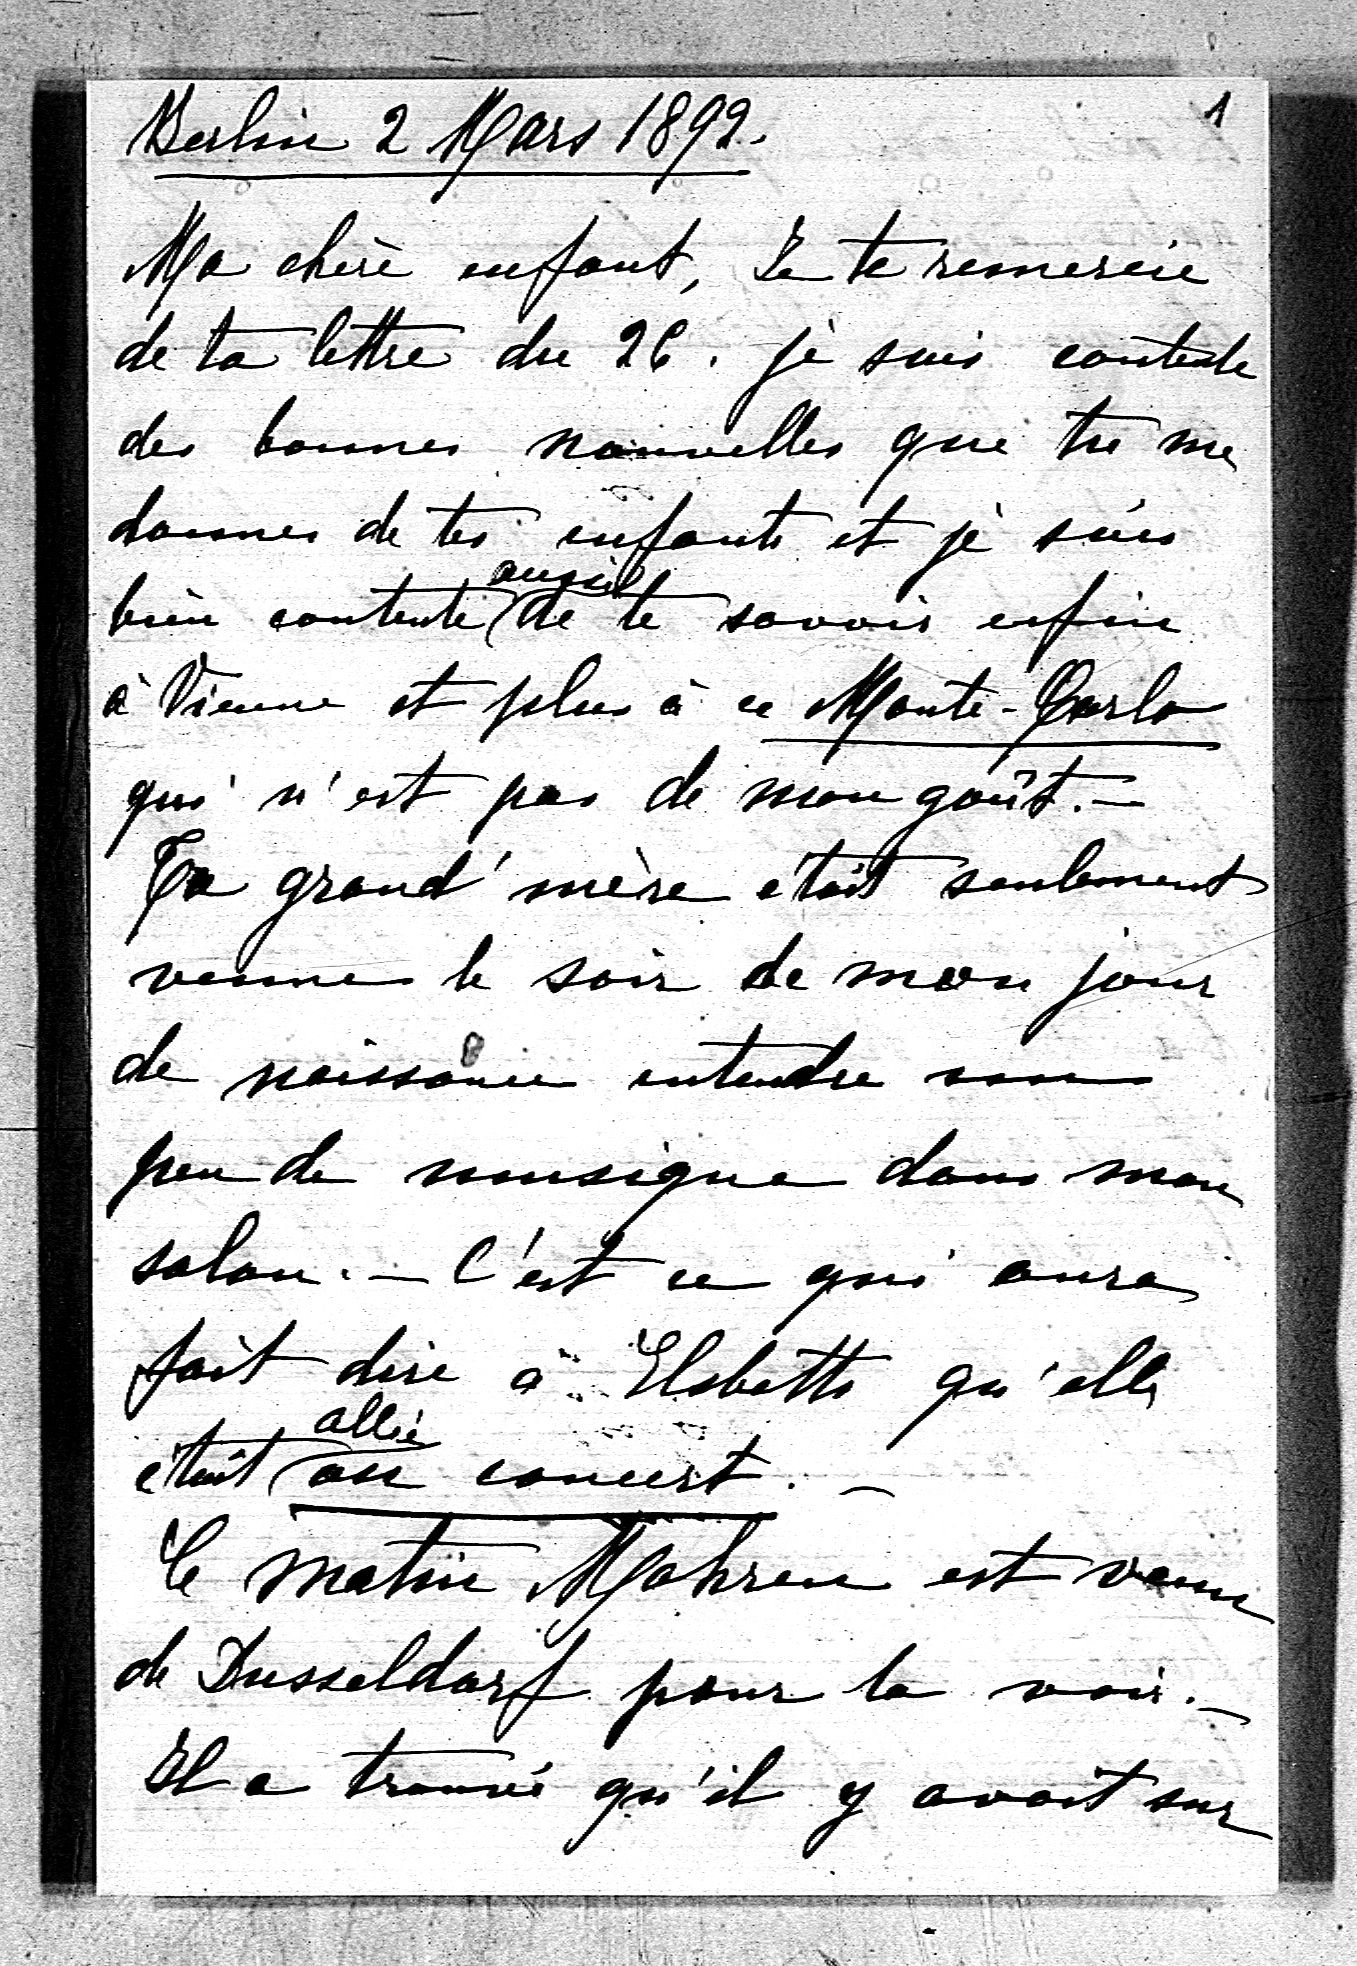 1
Berlin 2 Mars 1892.
Ma chère enfant, Je te remercie
de ta lettre du 26. je suis contente
des bonnes nouvelles que tu me
donnes de tes enfants et je suis
bien contente aussi de te savoir enfin
à Vienne et plus à ce Monte-Carlo
qui n'est pas de mon goût. —
Ta grand'mère était seulement
venue le soir de mon jour
de naissance entendre un
peu de musique dans mon
salon. — C'est ce qui aura
fait dire à Elsbeth qu'elle
était allée au concert. —
Ce matin Mohren est venu
de Dusseldorf pour la voir. —
Il a trouvé qu'il y avait sur